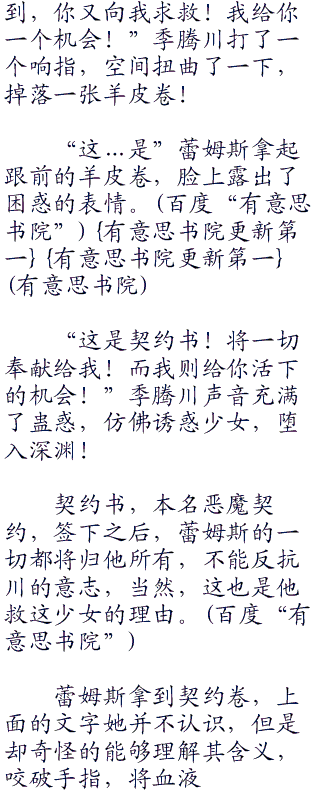 到，你又向我求救！我给你
一个机会！”季腾川打了一
个响指，空间扭曲了一下，
掉落一张羊皮卷！
“这…是”蕾姆斯拿起
跟前的羊皮卷，脸上露出了
困惑的表情。(百度“有意思
书院”) {有意思书院更新第
一} {有意思书院更新第一}
(有意思书院)
“这是契约书！将一切
奉献给我！而我则给你活下
的机会！”季腾川声音充满
了蛊惑，仿佛诱惑少女，堕
入深渊！
契约书，本名恶魔契
约，签下之后，蕾姆斯的一
切都将归他所有，不能反抗
川的意志，当然，这也是他
救这少女的理由。(百度“有
意思书院”)
蕾姆斯拿到契约卷，上
面的文字她并不认识，但是
却奇怪的能够理解其含义，
咬破手指，将血液